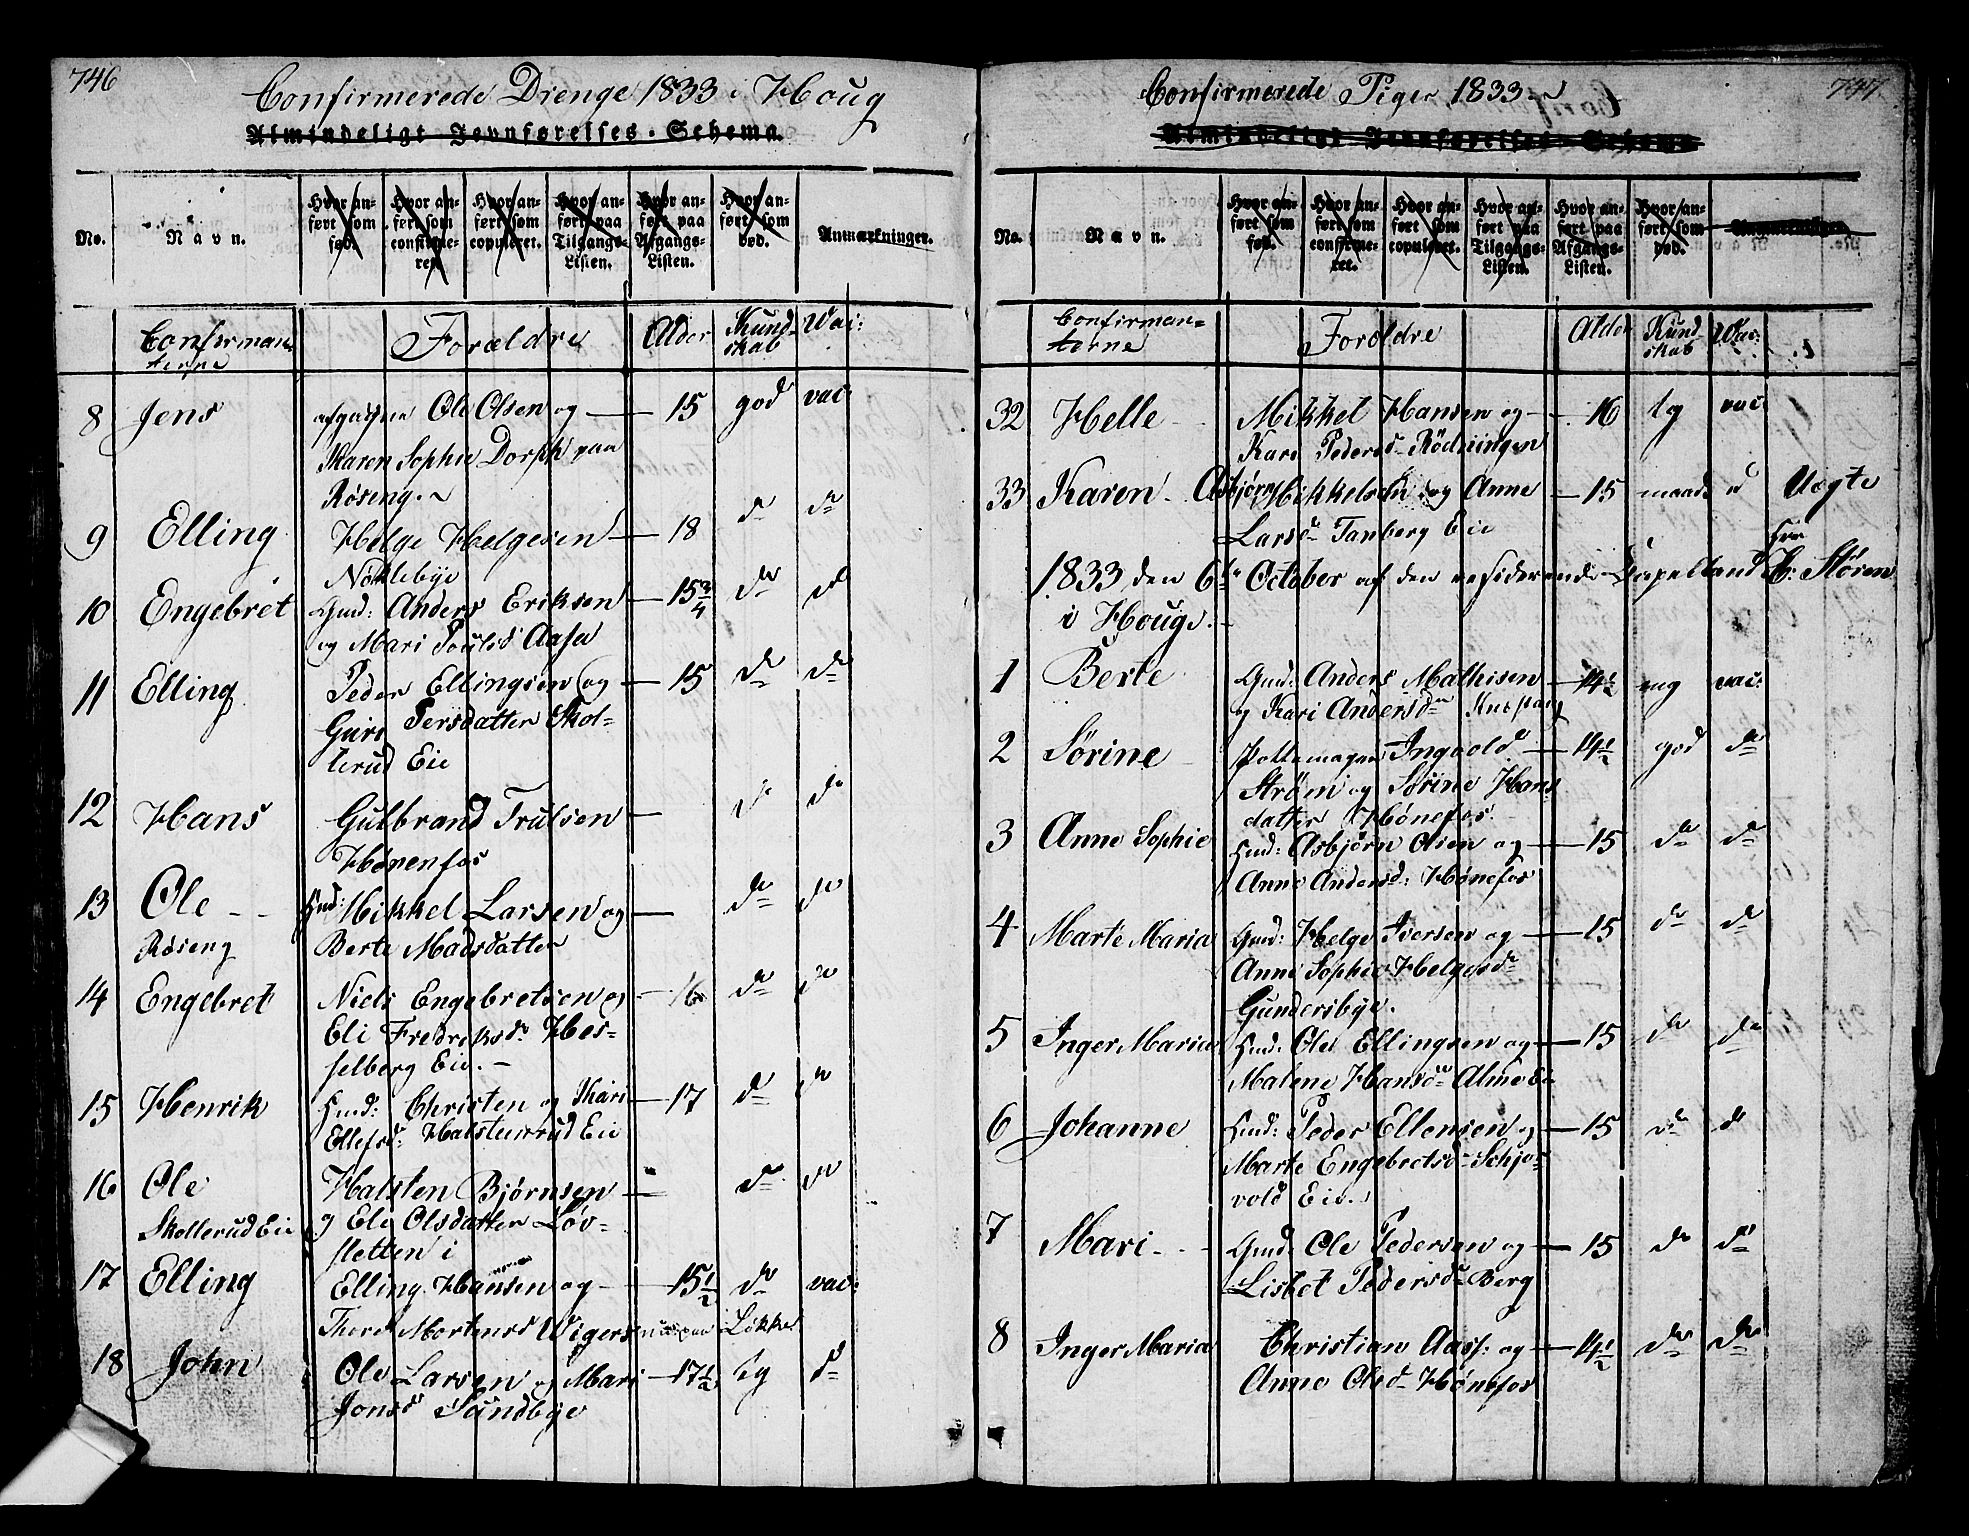 746
Confirmerede Drenge 1833 i Houg
Almindeligt Jevnførelses-Schema.
No.
Navn.
Hvor anført som fød.
Hvor anført som confirmeret.
Hvor anført som copuleret.
Hvor anført paa Tilgangs-Listen.
Hvor anført paa Afgangs-Listen.
Hvor anført som død.
Anmærkninger.
Confirman-
terne
Forældre
Alder
Kund-
skab
Vac:
8 Jens afgagne Ole Olsen og 15 god vac:
Karen Sophie Dorph paa
Røseng.
9 Elling Helge Helgesen 18 do do
Noklebye
10 Engebret Gmd: Anders Eriksen 15 3/4 do do
og Mari Poulsd Aasa
11 Elling Peder Ellingsen og 15 do do
Guri Persdatter Skol-
lerud Eie
12 Hans Gulbrand Trulsen do do
Hønenfos
13 Ole Hmd: Mikkel Larsen og do do
Røseng Berte Madsdatter
14 Engebret Niels Engebretsen og 16 do do
Eli Fredriksd: Hes-
selberg Eie.
15 Henrik Hmd: Christen og Kari 17 do do
Ellefsd: Halsteinrud Eie
16 Ole Halsten Bjørnsen do do
Skollerud Eie og Eli Olsdatter Løv-
sletten i
17 Elling Elling Hansen og 15 1/2 do vac:
Thore Mortensd Wigers Løkke
18 John Ole Larsen og Mari 17 1/2 tg do
Jonsd Sandbye
747
Confirmerede Piger 1833
Almindeligt Jevnførelses-Schema
No.
Navn.
Hvor anført som fød.
Hvor anført som confirmeret.
Hvor anført som copuleret.
Hvor anført paa Tilgangs-Listen.
Hvor anført paa Afgangs-Listen.
Hvor anført som død.
Anmærkninger.
Confirman-
terne
Forældre
Alder
Kund
skab
Vac:
32 Helle Mikkel Hansen og 16 tg vac
Kari Pedersd Rødningen
33 Karen Asbjørn Mikkelsen og Anne 15 maade
Larsd Tanberg Eie
1833 den 6te October af den residerende Capelland Hr Støren
i Houg.
1 Berte Gmd: Anders Mathisen 14 1/2 mg vac:
og Kari Andersd
2 Sørine Pottemager Ingvold 14 1/2 god do
Strøm og Sørine Hans
datter Hønefos.
3 Anne Sophie Hmd: Asbjørn Olsen og 15 do do
Anne Andersd: Hønefos
4 Marte Maria Gmd: Helge Iversen og 15 do do
Anne Sophie Helgesd
Gundersbye.
5 Inger Maria Hmd: Ole Ellingsen og 15 do do
Malene Hansd Alme Eie
6 Johanne Hmd: Peder Ellensen og 15 do do
Marte Engebretsd Schjo-
vold Eie.
7 Mari Gmd: Ole Pedersen og 15 do do
Lisbet Pedersd Berg
8 Inger Maria Christian Aass: og 14 1/2 do do
Anne Olsd Hønefos